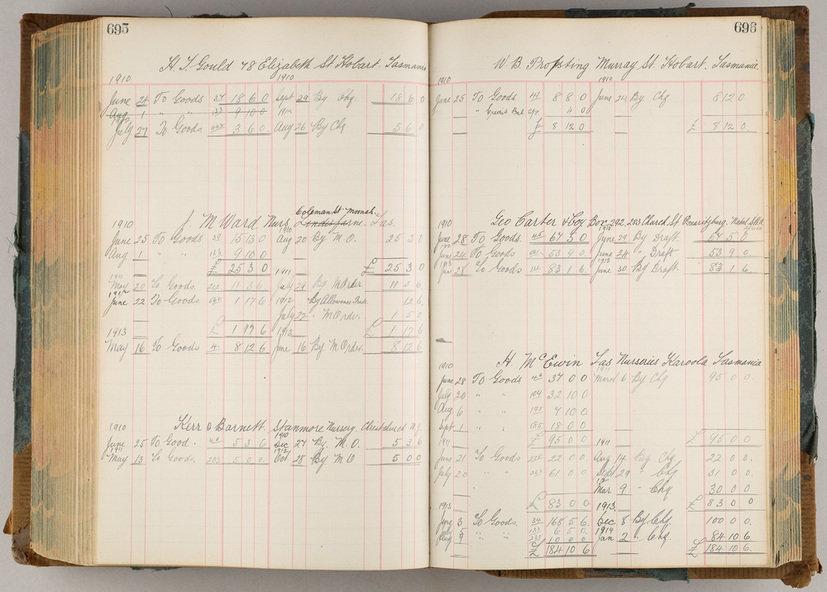 695
H. T. Gould 78 Elizabeth St Hobart. Tasmania
1910 1910
June 24 To Goods 18 6 0 Sept 29 By Chq. 18 6 0
Aug 1 " " 9 10 0
July 27 To Goods 3 6 0 Aug 26 By Chq 3 6 0
Coleman St. Moonah.
1910 J. M Ward Nurs. Tas.
June 25 To Goods 15 13 0 Aug 20 By M.O. 25 3 0
Aug 1 " " 9 10 0
£ 25 3 0 1911 £ 25 3 0
May 20 To Goods 11 3 6 July 24 By M Order 11 2 6
June 22 To Goods 1 17 6 1912 By Allowance 12 6
July 22 " M Order 1 5 0
£ 1 17 6 £ 1 17 6
1913
May 16 To Goods 8 12 6 June 16 By M Order 8 12 6
Kerr & Barnett. Stanmore Nursery Christchurch N.Z.
1910 1910
June 25 To Good 5 3 6 Dec 27 By M.O. 5 3 6
1911
May 13 To Goods 5 0 0 Oct 28 By M O 5 0 0
696
W B Propsting Murray St. Hobart. Tasmania.
1910 1910
June 25 To Goods 8 8 0 June 24 By Chq 8 12 0
4 0
£ 8 12 0 £ 8 12 0
1910 Geo Carter & Coy Box 292. 203 Church St Pmaritzburg. Natal S.A.
June 28 To Goods 67 5 0 June 29 By Draft 67 5 0
June 20 To Goods 53 9 0 June 24 " Draft 53 9 0
28 To Goods 83 1 6 June 30 By Draft. 83 1 6
H. McEwin Tas Nurseries Karoola Tasmania
1910
June 28 To Goods 37 0 0 March 6 By Chq 95 0 0
July 20 " " 32 10 0
Aug 6 " " 7 10 0
Sept 1 " " 18 0 0
1911 £ 95 0 0 1911 £ 95 0 0
June 21 To Goods 22 0 0 Aug 14 By Chq 22 0 0
July 20 " " 61 0 0 Sept 29 " Chq 31 0 0
Mar 9 " Chq 30 0 0
£ 83 0 0 £ 83 0 0
1913 1913
5 To Goods 168 5 6 Dec 8 By Chq. 100 0 0
Aug 9 " " 6 5 0 1914 Jan 2 " Chq. 84 10 6
10 0 0
£ 184 10 6 £ 184 10 6